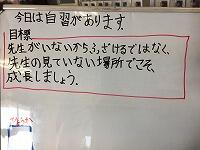 今日は自習があります.
目標
先生がいないからふざけるではなく、
先生の見ていない場所でこそ、
成長しましょう.